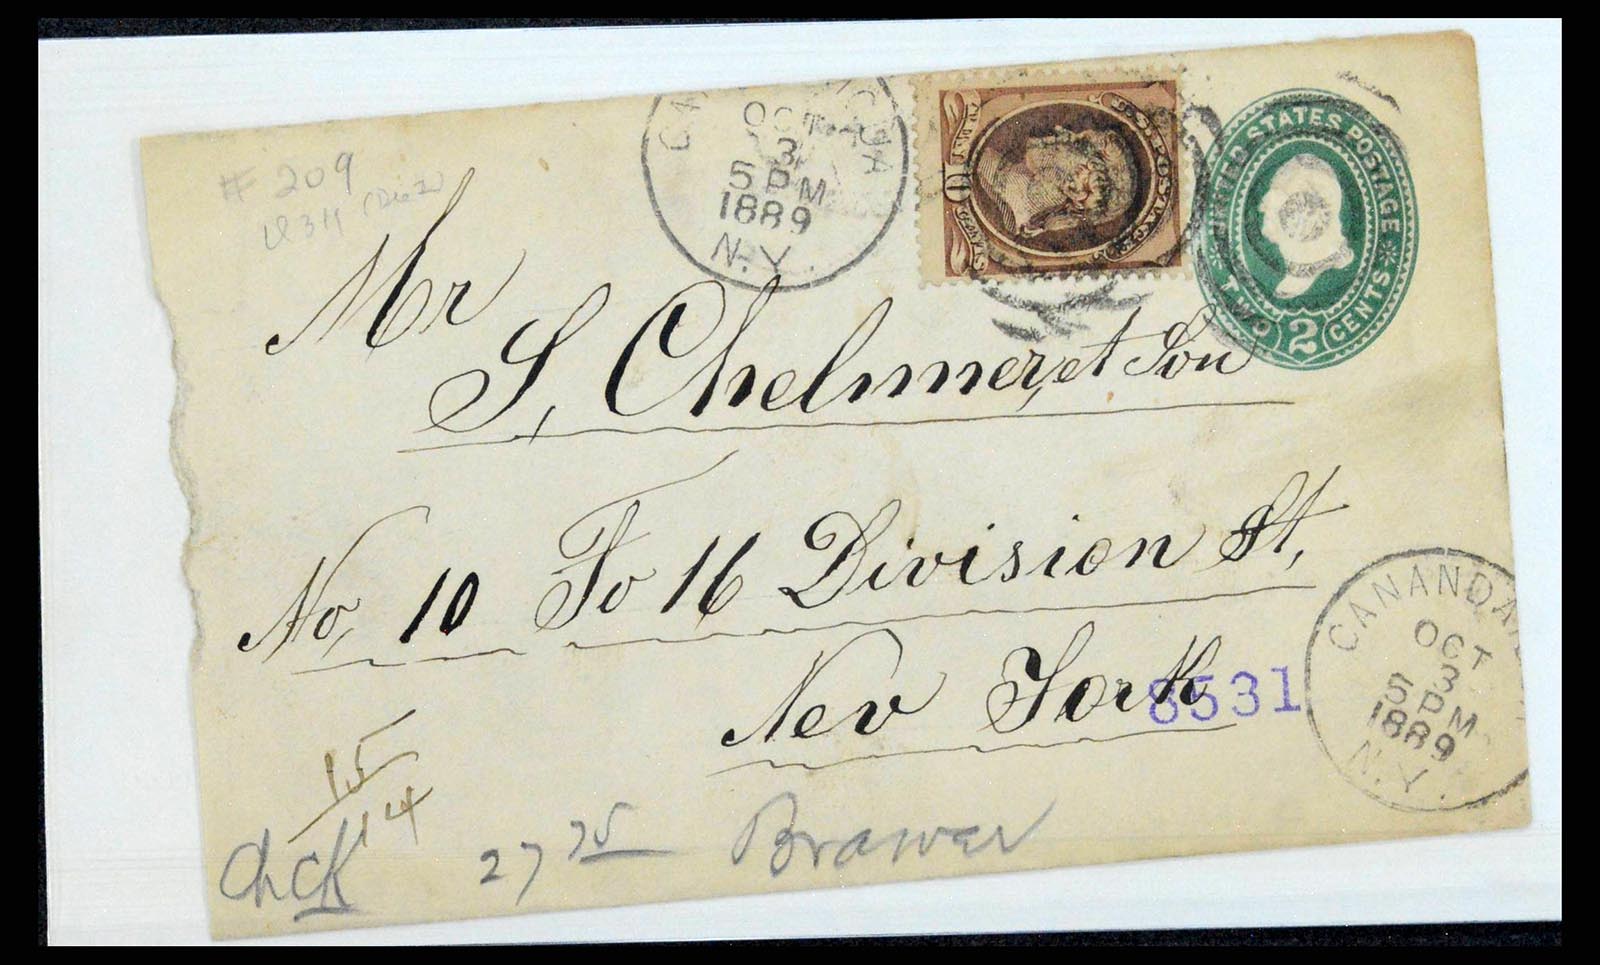 # 209
U311 (Die 2)
CANANDAIGUA
OCT
3
5 PM
1889
N.Y.
U.S. POSTAGE
10
UNITED STATES POSTAGE
TWO 2 CENTS
Mr
S, Chelmner, et Son
No, 10 To 16 Division St,
New York
8531
CANANDAI
OCT
3
5 PM
1889
N.Y.
15
14
Chck 27 75 Brawer